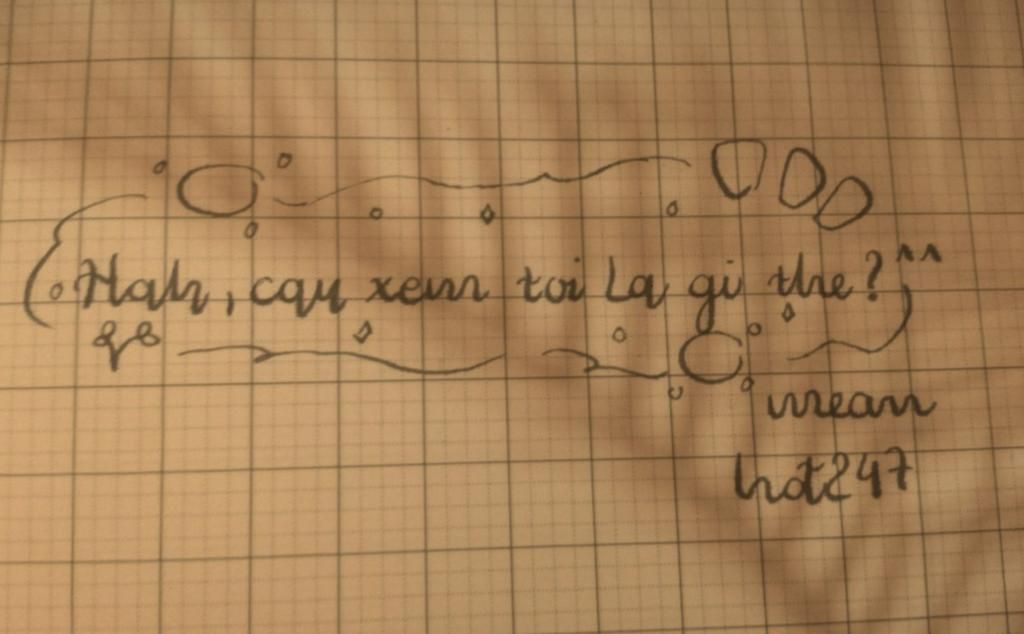 Hah, cạu xem toi La gi the? ^^
mean
hot247